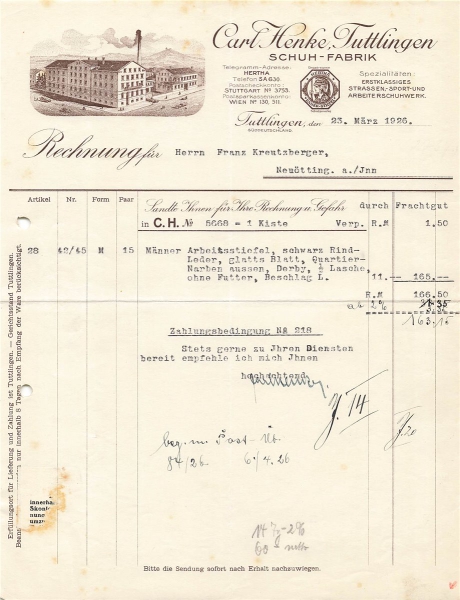 Carl Henke, Tuttlingen
SCHUH-FABRIK
Telegramm-Adresse:
HERTHA
Telefon SA 636.
Postscheckkonto:
STUTTGART Nº 3753.
Postsparkassenkonto:
WIEN Nº 130, 311.
HERTHA
Spezialitäten:
ERSTKLASSIGES
STRASSEN-, SPORT-UND
ARBEITERSCHUHWERK.
Tuttlingen, den 23. März 1926.
SÜDDEUTSCHLAND
Rechnung für Herrn Franz Kreutzberger,
Neuötting. a./Jnn
Artikel Nr. Form Paar Sandte Ihnen für Ihre Rechnung u. Gefahr durch Frachtgut
in C.H. № 5668 = 1 Kiste Verp. R.M 1,50
28 42/45 M 15 Männer Arbeitsstiefel, schwarz Rind-
Leder, glatts Blatt, Quartier-
Narben aussen, Derby, ½ Lasche,
ohne Futter, Beschlag L. 11.— 165.—
R.M 166,50
ab 2%
163.15
Zahlungsbedingung No 218
Stets gerne zu Jhren Diensten
bereit empfehle ich mich Jhnen
hochachtend
J. 14
beg. m. Post-
84/26. 6./4.26
14 Tg - 2%
60 " netto
Bitte die Sendung sofort nach Erhalt nachzuwiegen.
Erfüllungsort für Lieferung und Zahlung ist Tuttlingen. — Gerichtsstand Tuttlingen.
nur innerhalb 8 Tagen nach Empfang der Ware berücksichtigt.